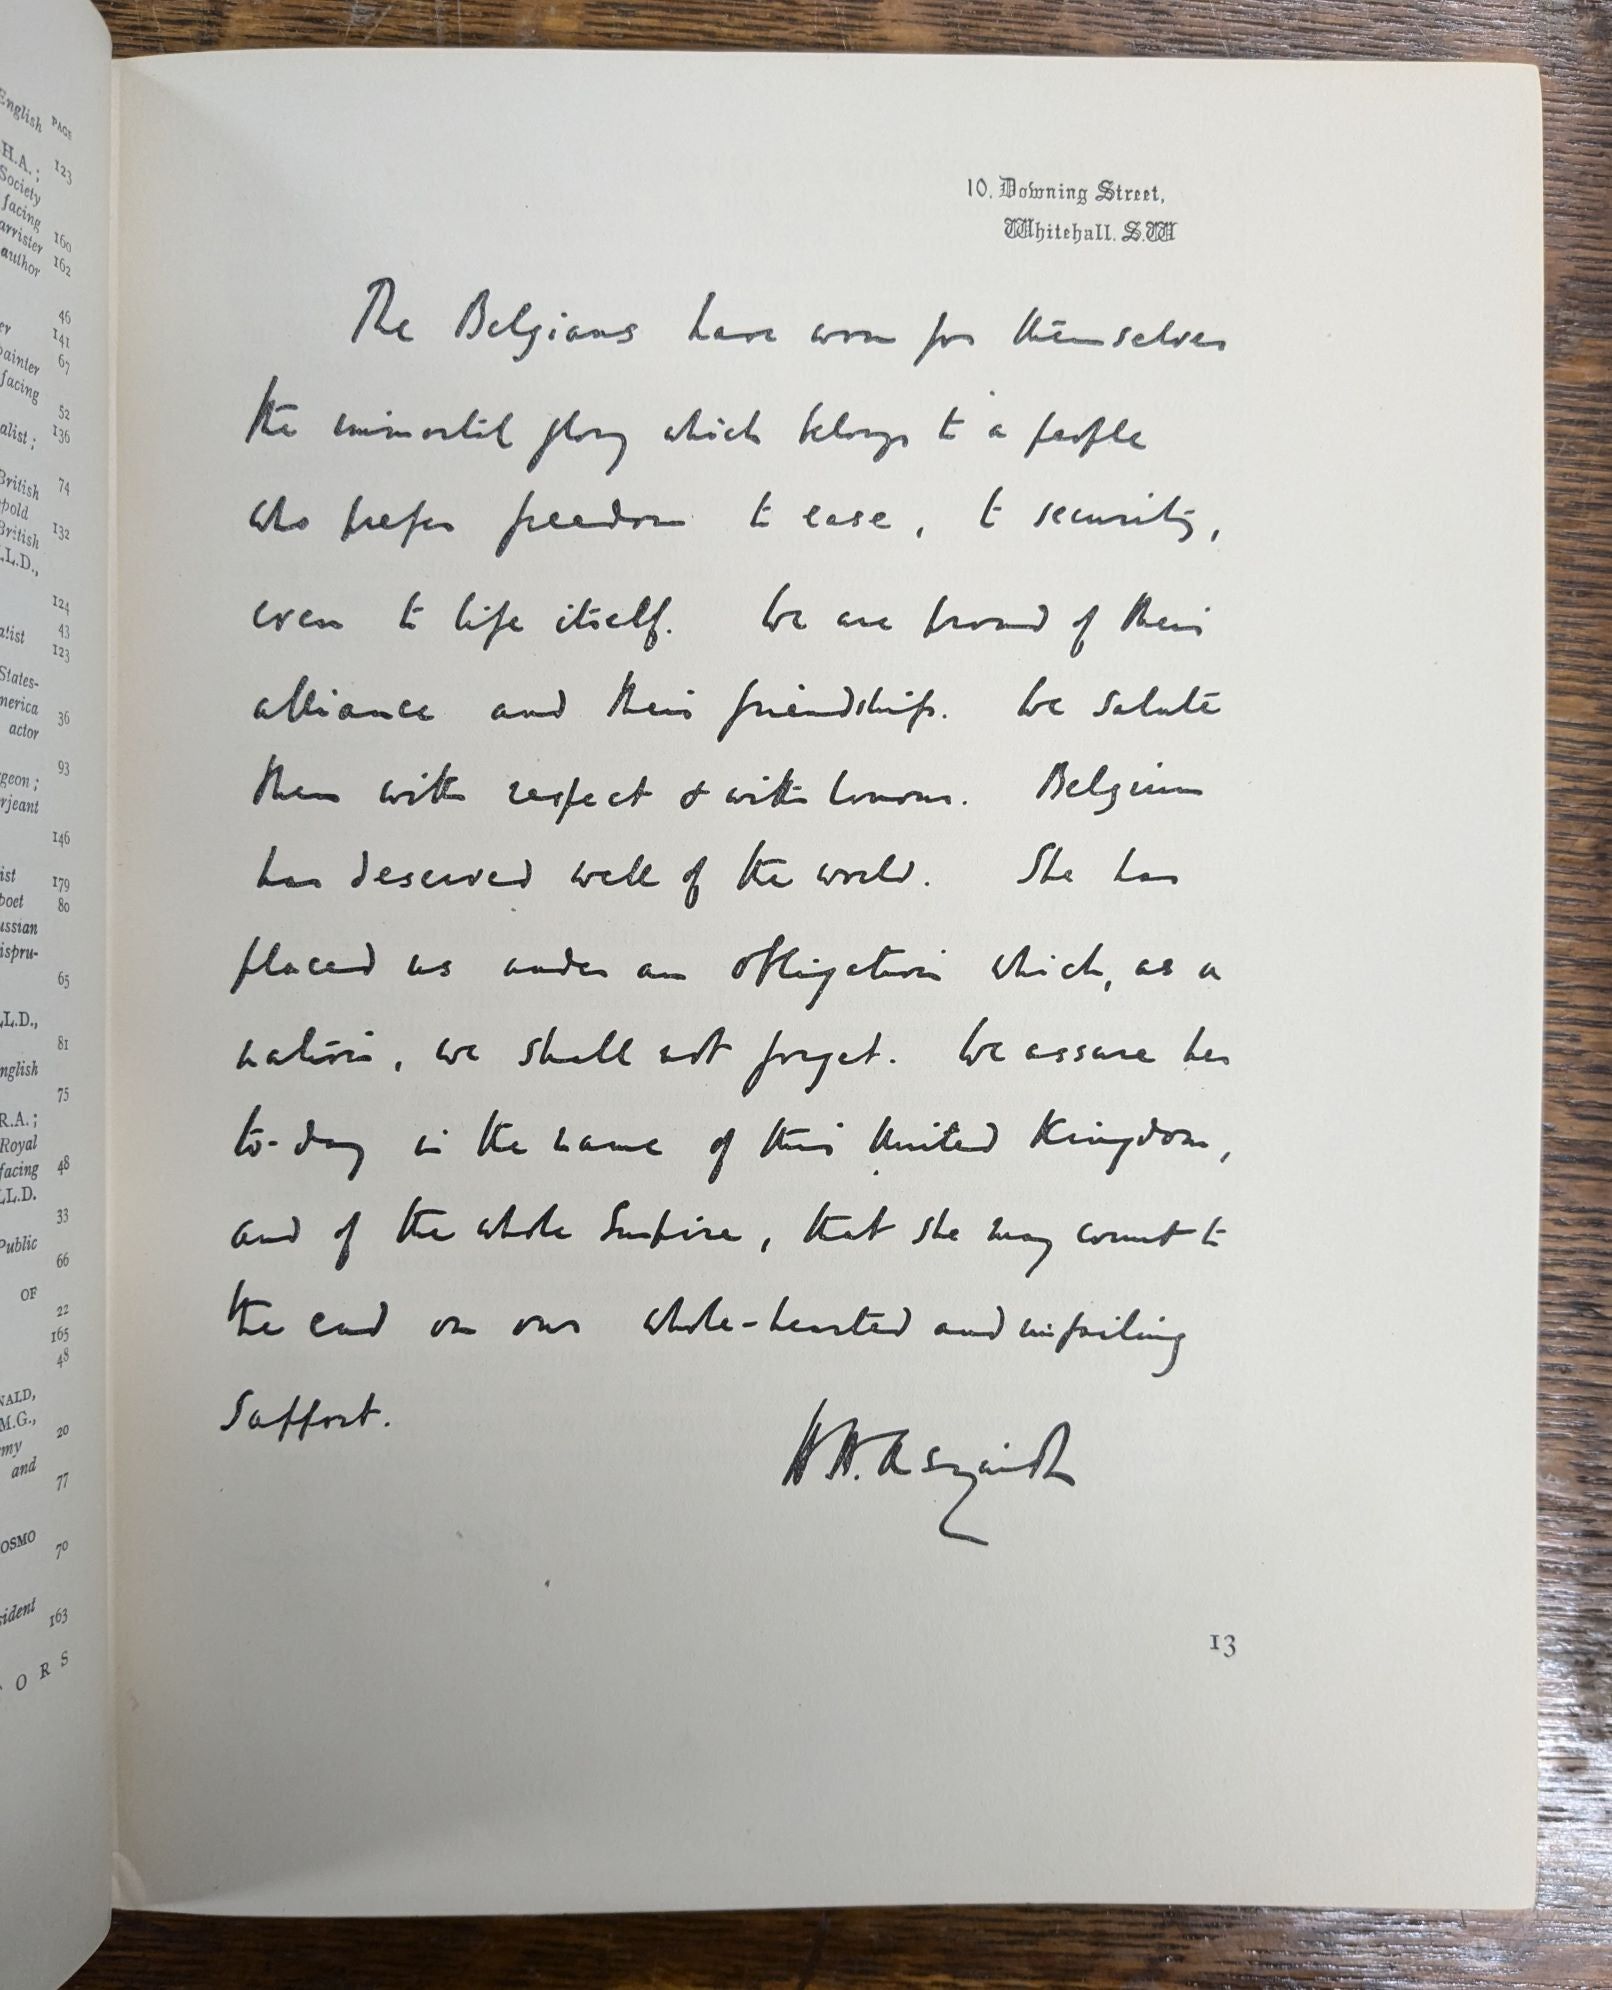 English PAGE
H.A.; 123
Society
facing 160
arrister 162
author
46
er 141
painter 67
facing
52
alist; 136
British 74
pold
British 132
L.D.,
124
alist 43
123
States-
merica 36
actor
93
geon;
rjeant
146
ist 179
poet 80
ussian
ispru-
65
LL.D.,
81
nglish
75
R.A.;
Royal
facing 48
LL.D.
33
Public
66
OF
22
165
48
NALD,
M.G., 20
my
and 77
OSMO
70
sident
163
O R S
10. Downing Street,
Whitehall. S.W
The Belgians have won for themselves
the immortal glory which belongs to a people
who prefer freedom to ease, to security,
even to life itself. We are proud of their
alliance and their friendship. We salute
them with respect & with honour. Belgium
has deserved well of the world. She has
placed us under an obligation which, as a
nation, we shall not forget. We assure her
to-day in the name of this United Kingdom,
and of the whole Empire, that she may count to
the end on our whole-hearted and unfailing
support.
H.H. Asquith
13